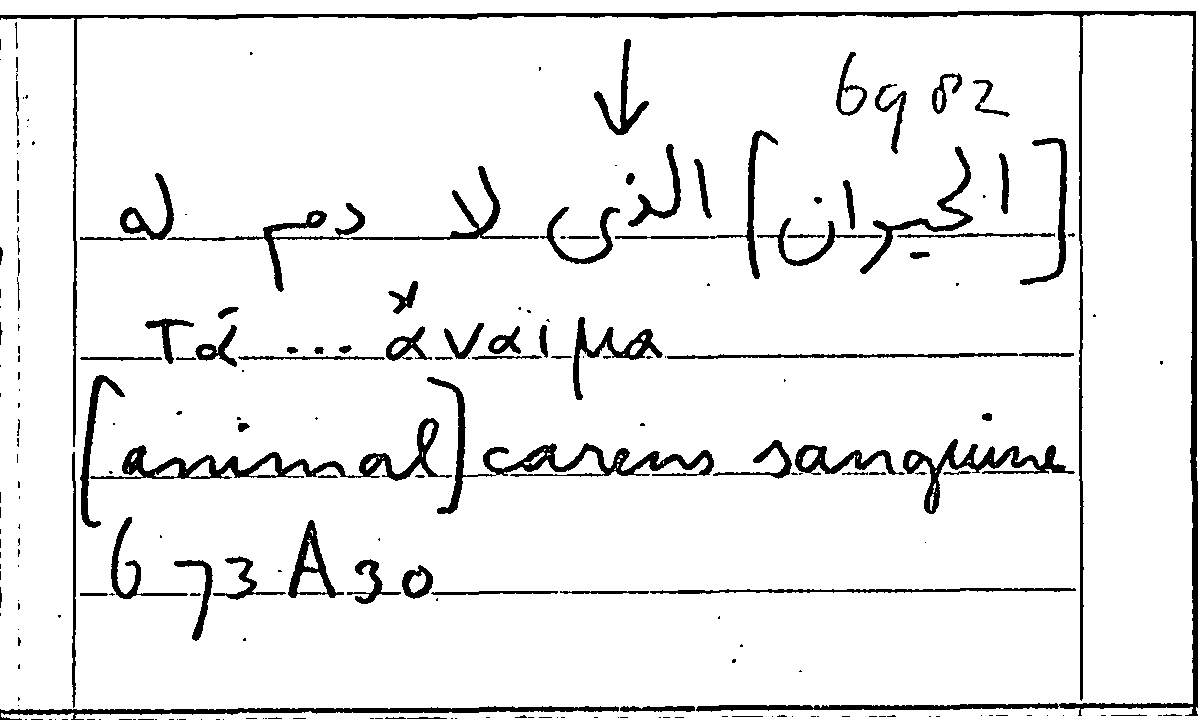 ↓ 6982
[الحيوان] الذى لا دم له
τὰ ... ἄναιμα
[animal] carens sanguine
673A30